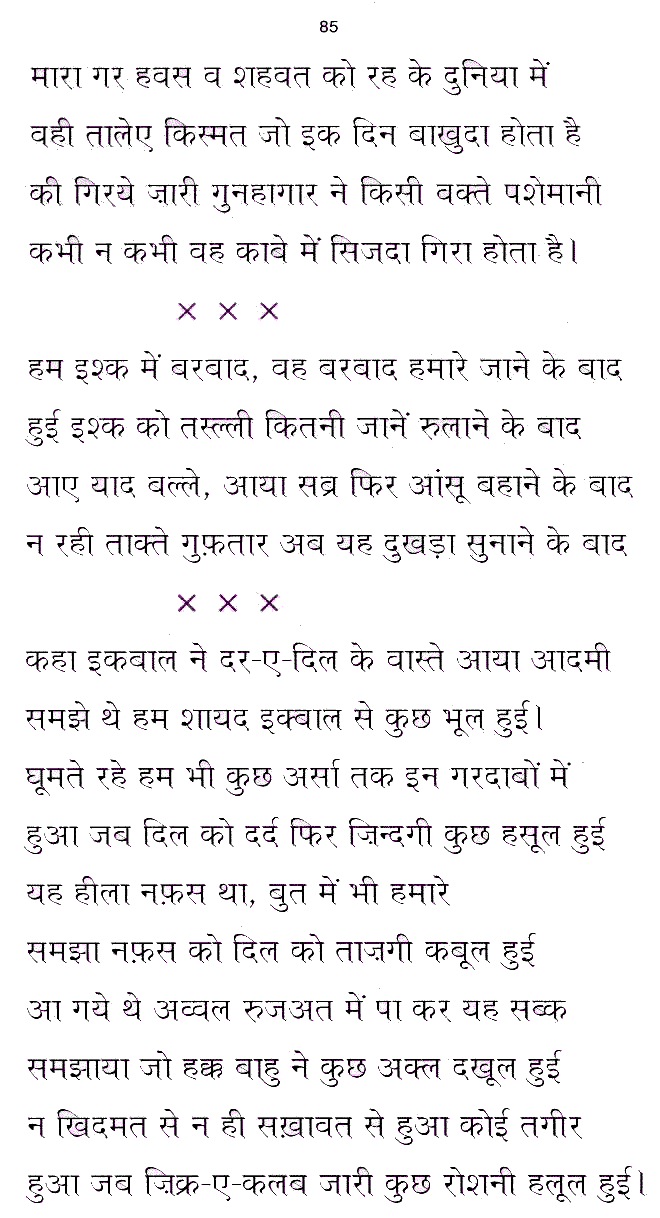 85
मारा गर हवस व शहवत को रह के दुनिया में
वही तालेए किस्मत जो इक दिन बाखुदा होता है
की गिरये ज़ारी गुनहागार ने किसी वक्ते पशेमानी
कभी न कभी वह काबे में सिजदा गिरा होता है।
× × ×
हम इश्क में बरबाद, वह बरबाद हमारे जाने के बाद
हुई इश्क को तस्ल्ली कितनी जानें रुलाने के बाद
आए याद बल्ले, आया सब्र फिर आंसू बहाने के बाद
न रही ताक्ते गुफ़तार अब यह दुखड़ा सुनाने के बाद
× × ×
कहा इकबाल ने दर-ए-दिल के वास्ते आया आदमी
समझे थे हम शायद इक्बाल से कुछ भूल हुई।
घूमते रहे हम भी कुछ अर्सा तक इन गरदाबों में
हुआ जब दिल को दर्द फिर ज़िन्दगी कुछ हसूल हुई
यह हीला नफ़स था, बुत में भी हमारे
समझा नफ़स को दिल को ताज़गी कबूल हुई
आ गये थे अव्वल रुजअत में पा कर यह सब्क
समझाया जो हक्क बाहु ने कुछ अक्ल दखूल हुई
न खिदमत से न ही सख़ावत से हुआ कोई तगीर
हुआ जब ज़िक्र-ए-कलब जारी कुछ रोशनी हलूल हुई।